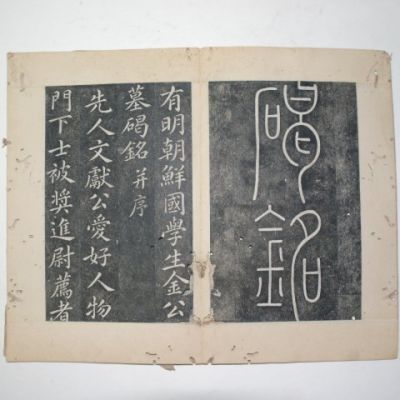 碣銘
有明朝鮮國學生金公
墓碣銘并序
先人文獻公愛好人物
門下士被奬進尉薦者